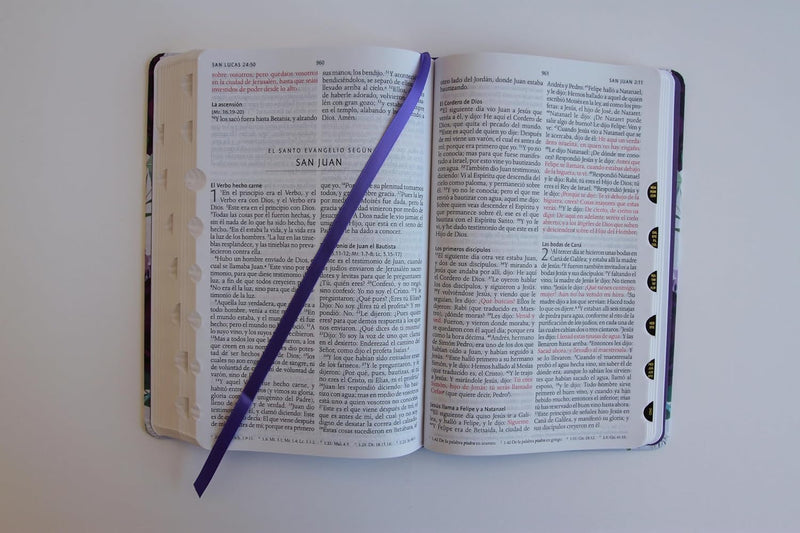 SAN LUCAS 24:50
960
sobre vosotros; pero quedaos vosotros
en la ciudad de Jerusalén, hasta que seáis
investidos de poder desde lo alto.
La ascensión
(Mr. 16.19-20)
50Y los sacó fuera hasta Betania, y alzando
sus manos, los bendijo. 51Y aconteció
bendiciéndolos, se separó de
llevado arriba al cielo.
de haberle adorado, volvieron
lén con gran gozo;
en el templo, alabando y
Dios. Amén.
EL SANTO EVANGELIO SEGÚN
SAN JUAN
El Verbo hecho carne
1 En el principio era el Verbo, y el
Verbo era con Dios, y el Verbo era
Dios. 2Este era en el principio con Dios.
3Todas las cosas por él fueron hechas, y
sin él nada de lo que ha sido hecho, fue
hecho. 4En él estaba la vida, y la vida era
la luz de los hombres. 5La luz en las tinie-
blas resplandece, y las tinieblas no preva-
lecieron contra ella.
6Hubo un hombre enviado de Dios, el
cual se llamaba Juan. 7Este vino por
timonio, para que diese testimonio de la
luz, a fin de que todos creyesen
8No era él la luz, sino para que diese tes-
timonio de la luz.
9Aquella luz verdadera, que alumbra a
todo hombre, venía a este
el mundo estaba, y el mundo
hecho; pero el mundo no le conoció. 11A
lo suyo vino, y los suyos no le recibieron.
12Mas a todos los que le recibieron, a los
que creen en su nombre, les dio potes-
tad de ser hechos hijos de Dios;
los cuales no son engendrados de sangre,
ni de voluntad de carne, ni de voluntad
de varón, sino de Dios.
14Y aquel Verbo fue hecho carne, y
habitó entre nosotros
gloria como del unigénito del Padre),
lleno de gracia y de verdad. 15Juan dio
testimonio de él, y clamó diciendo: Este
es de quien yo decía: El que viene después
que yo. 16Porque de su plenitud tomamos
todos, y gracia sobre gracia. 17Pues
por medio de Moisés fue dada, pero la
gracia y la verdad vinieron por medio de
Jesucristo. 18A Dios nadie le vio jamás;
que está en el seno del Padre,
ha dado a conocer.
Testimonio de Juan el Bautista
19Este es el testimonio de Juan, cuando
los judíos enviaron de Jerusalén sacer-
dotes y levitas para que le preguntasen:
¿Tú, quién eres? 20Confesó, y no negó,
sino confesó: Yo no soy el Cristo. 21Y le
preguntaron: ¿Qué pues? ¿Eres tú Elías?
Dijo: No soy. ¿Eres tú el profeta? Y res-
pondió: No. 22Le dijeron: ¿Pues quién
eres? para que demos respuesta a los que
nos enviaron. ¿Qué dices de ti mismo?
23Dijo: Yo soy la voz de uno que clama
en el desierto: Enderezad el camino del
Señor, como dijo el profeta Isaías.
24Y los que habían sido enviados eran
de los fariseos. 25Y le preguntaron, y le
dijeron: ¿Por qué, pues, bautizas, si tú
no eres el Cristo, ni Elías, ni el profeta?
26Juan les respondió diciendo: Yo bau-
tizo con agua; mas en medio de vosotros
está uno a quien vosotros no conocéis.
27Este es el que viene después de mí, el
que es antes de mí, del cual yo no soy
digno de desatar la correa del calzado.
28Estas cosas sucedieron en Betábara, al
961
SAN JUAN 2:11
otro lado del Jordán, donde Juan estaba
bautizando.
El Cordero de Dios
29El siguiente día vio Juan a Jesús que
venía a él, y dijo: He aquí el Cordero de
Dios, que quita el pecado del mundo.
30Este es aquel de quien yo dije: Después
de mí viene un varón, el cual es antes de
mí; porque era primero que yo. 31Y yo no
le conocía; mas para que fuese manifes-
tado a Israel, por esto vine yo bautizando
con agua. 32También dio Juan testimonio,
diciendo: Vi al Espíritu que descendía del
cielo como paloma, y permaneció sobre
él. 33Y yo no le conocía; pero el que me
envió a bautizar con agua, aquél me dijo:
Sobre quien veas descender el Espíritu y
que permanece sobre él, ése es el que
bautiza con el Espíritu Santo. 34Y yo le
vi, y he dado testimonio de que éste es el
Hijo de Dios.
Los primeros discípulos
35El siguiente día otra vez estaba Juan,
y dos de sus discípulos. 36Y mirando a
Jesús que andaba por allí, dijo: He aquí
el Cordero de Dios. 37Le oyeron hablar
los dos discípulos, y siguieron a Jesús.
38Y volviéndose Jesús, y viendo que le
seguían, les dijo: ¿Qué buscáis? Ellos le
dijeron: Rabí (que traducido es, Maes-
tro), ¿dónde moras? 39Les dijo: Venid y
ved. Fueron, y vieron donde moraba, y
se quedaron con él aquel día; porque era
como la hora décima. 40Andrés, hermano
de Simón Pedro, era uno de los dos que
habían oído a Juan, y habían seguido a
Jesús. 41Este halló primero a su hermano
Simón, y le dijo: Hemos hallado al Mesías
(que traducido es, el Cristo). 42Y le trajo
a Jesús. Y mirándole Jesús, dijo: Tú eres
Simón, hijo de Jonás; tú serás llamado
Cefas (que quiere decir, Pedro).
Jesús llama a Felipe y a Natanael
43El siguiente día quiso Jesús ir a Gali-
lea, y halló a Felipe, y le dijo: Sígueme.
44Y Felipe era de Betsaida, la ciudad de
Andrés y Pedro. 45Felipe halló a Natanael,
y le dijo: Hemos hallado a aquél de quien
escribió Moisés en la ley, así como los pro-
fetas: a Jesús, el hijo de José, de Nazaret.
46Natanael le dijo: ¿De Nazaret puede
salir algo de bueno? Le dijo Felipe: Ven y
ve. 47Cuando Jesús vio a Natanael que se
le acercaba, dijo de él: He aquí un verda-
dero israelita, en quien no hay engaño.
48Le dijo Natanael: ¿De dónde me cono-
ces? Respondió Jesús y le dijo: Antes que
Felipe te llamara, cuando estabas debajo
de la higuera, te vi. 49Respondió Natanael
y le dijo: Rabí, tú eres el Hijo de Dios; tú
eres el Rey de Israel. 50Respondió Jesús y
le dijo: ¿Porque te dije: Te vi debajo de
la higuera, crees? Cosas mayores que estas
verás. 51Y le dijo: De cierto, de cierto os
digo: De aquí adelante veréis el cielo
abierto, y a los ángeles de Dios que suben
y descienden sobre el Hijo del Hombre.
Las bodas de Caná
2 Al tercer día se hicieron unas bodas en
Caná de Galilea; y estaba allí la madre
de Jesús. 2Y fueron también invitados a las
bodas Jesús y sus discípulos. 3Y faltando el
vino, la madre de Jesús le dijo: No tienen
vino. 4Jesús le dijo: ¿Qué tienes conmigo,
mujer? Aún no ha venido mi hora. 5Su
madre dijo a los que servían: Haced todo
lo que os dijere. 6Y estaban allí seis tinajas
de piedra para agua, conforme al rito de la
purificación de los judíos, en cada una de
las cuales cabían dos o tres cántaros. 7Jesús
les dijo: Llenad estas tinajas de agua. Y las
llenaron hasta arriba. 8Entonces les dijo:
Sacad ahora, y llevadlo al maestresala. Y se
lo llevaron. 9Cuando el maestresala
probó el agua hecha vino, sin saber él de
dónde era, aunque lo sabían los sirvientes
que habían sacado el agua, llamó al
esposo, 10y le dijo: Todo hombre sirve
primero el buen vino, y cuando ya han
bebido mucho, entonces el inferior; mas
tú has reservado el buen vino hasta ahora.
11Este principio de señales hizo Jesús en
Caná de Galilea, y manifestó su gloria; y
sus discípulos creyeron en él.